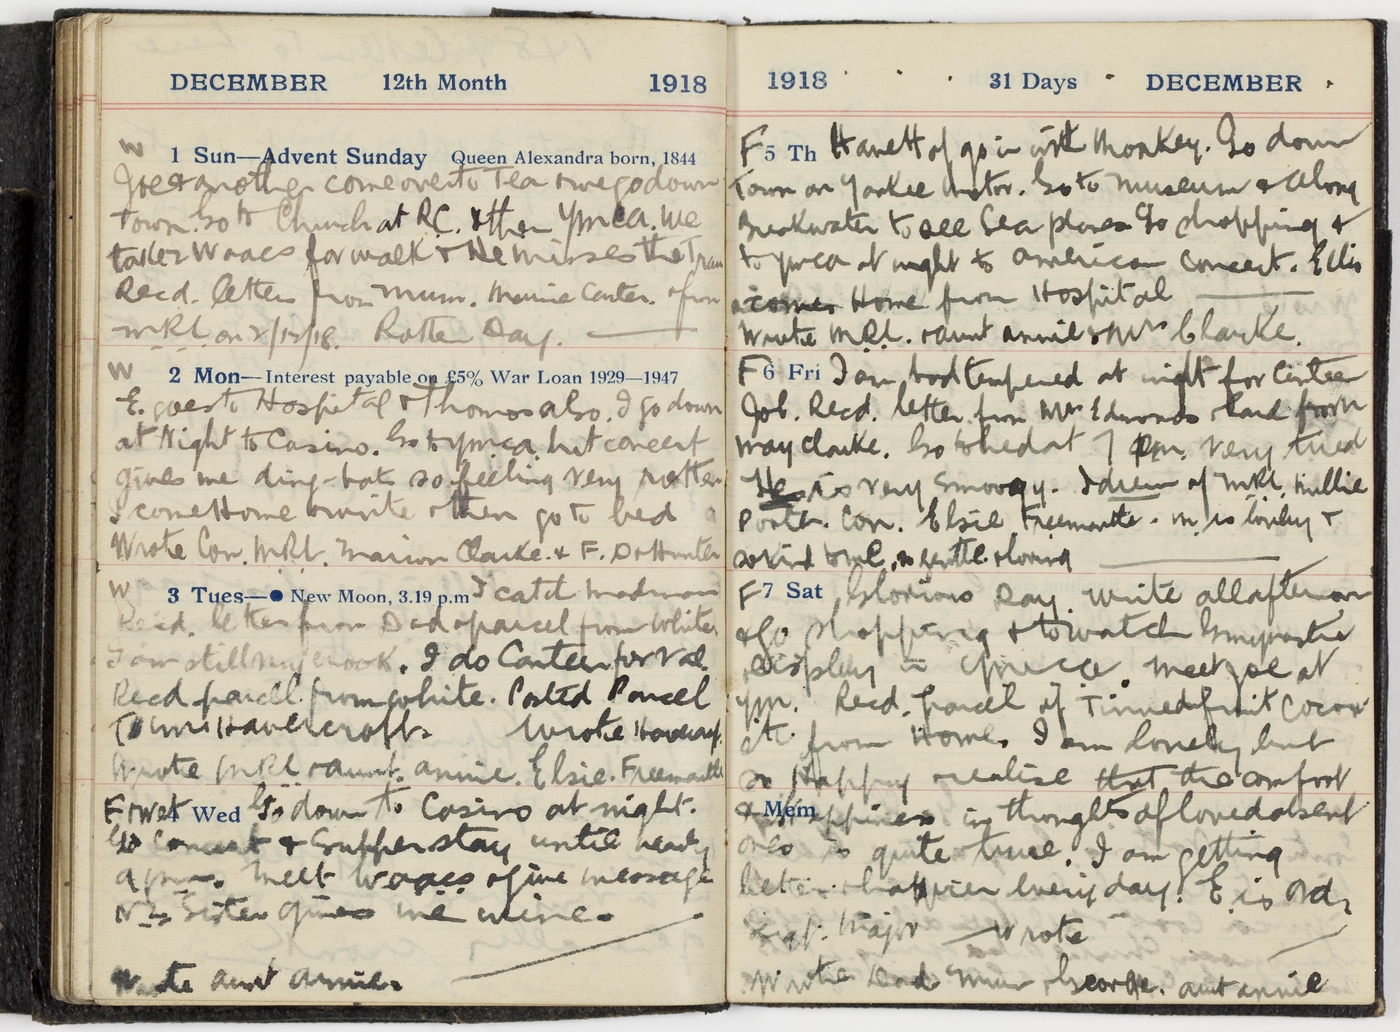 DECEMBER 12th Month 1918
W
1 Sun—Advent Sunday Queen Alexandra born, 1844
Joe & another come over to Tea & we go down
town. Go to Church at RC. & then Ymca. We
take 2 Waacs for walk & He misses the Tram
Recd. letter from Mum. Marie Carter. & from
MRL on 2/12/18. Rotten Day.
W
2 Mon—Interest payable on £5% War Loan 1929—1947
E. goes to Hospital & Thomas also. I go down
at Night to Casino. Go to Ymca. but concert
gives me ding-bats so feeling very rotten
I come Home & write & then go to bed
Wrote Con. MRL. Marion Clarke. & F. Hunter
W
3 Tues—● New Moon, 3.19 p.m I catch
Recd. letter from Dad & parcel from White
I am still crook. I do Canteen for Val.
Recd parcel from White. Posted Parcel
To Havercroft. Wrote Havercroft.
Wrote MRL & aunt. annie. Elsie. Freemantle
F wet
4 Wed Go down to Casino at night.
Go Concert & Supper stay until nearly
9 pm. Meet Waacs & give message
N.Z. Sister gives me wine.
Wrote aunt annie.
1918 31 Days DECEMBER
F
5 Th of go in with Monkey. Go down
Town on Yankee Motor. Go to Museum & Along
Breakwater to see Sea planes Go shopping &
to Ymca at night to American Concert. Ellis
comes Home from Hospital
Wrote MRL. & aunt annie & Mrs Clarke.
F
6 Fri I am bad tempered at night for Canteen
Job. Recd. letter from Mrs Edmonds & card from
May Clarke. Go to bed at 7 pm. very tired
He is very Smoogy. I dream of MRL. Millie
Porter. Con. Elsie Freemantle. M. is lovely &
so kind to me, so gentle & loving
F
7 Sat Glorious Day. Write all afternoon
& Go Shopping & to watch Gymnastic
display in Ymca. Meet Joe at
Ym. Recd. parcel of Tinned fruit Cocoa
etc. from Home. I am lonely but
so Happy & realise that the comfort
Mem
& Happiness in thoughts of loved absent
ones is quite true. I am getting
better & happier every day. E. is Ord,
Sgt. Major Wrote
Wrote Dad Mum George. aunt annie